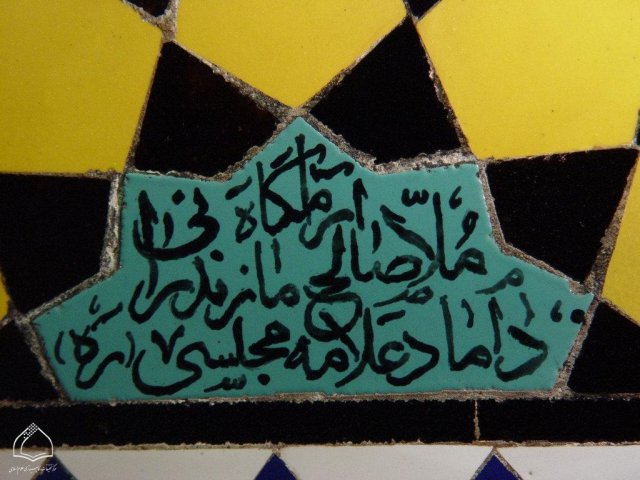 آرامگاه
مُلاّصالح مازندرانی
داماد علامه مجلسی (ره)